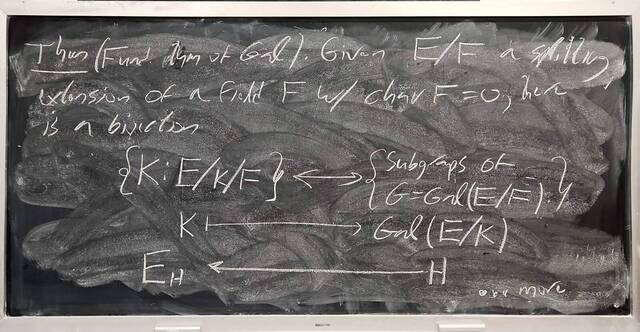 Thm (Fund. thm of Gal). Given E/F a splitting
extension of a field F w/ char F = 0, there
is a bijection
{K : E/K/F} ↔ {subgroups of
G = Gal(E/F).}
K ↦ Gal(E/K)
E_H ← H
... more